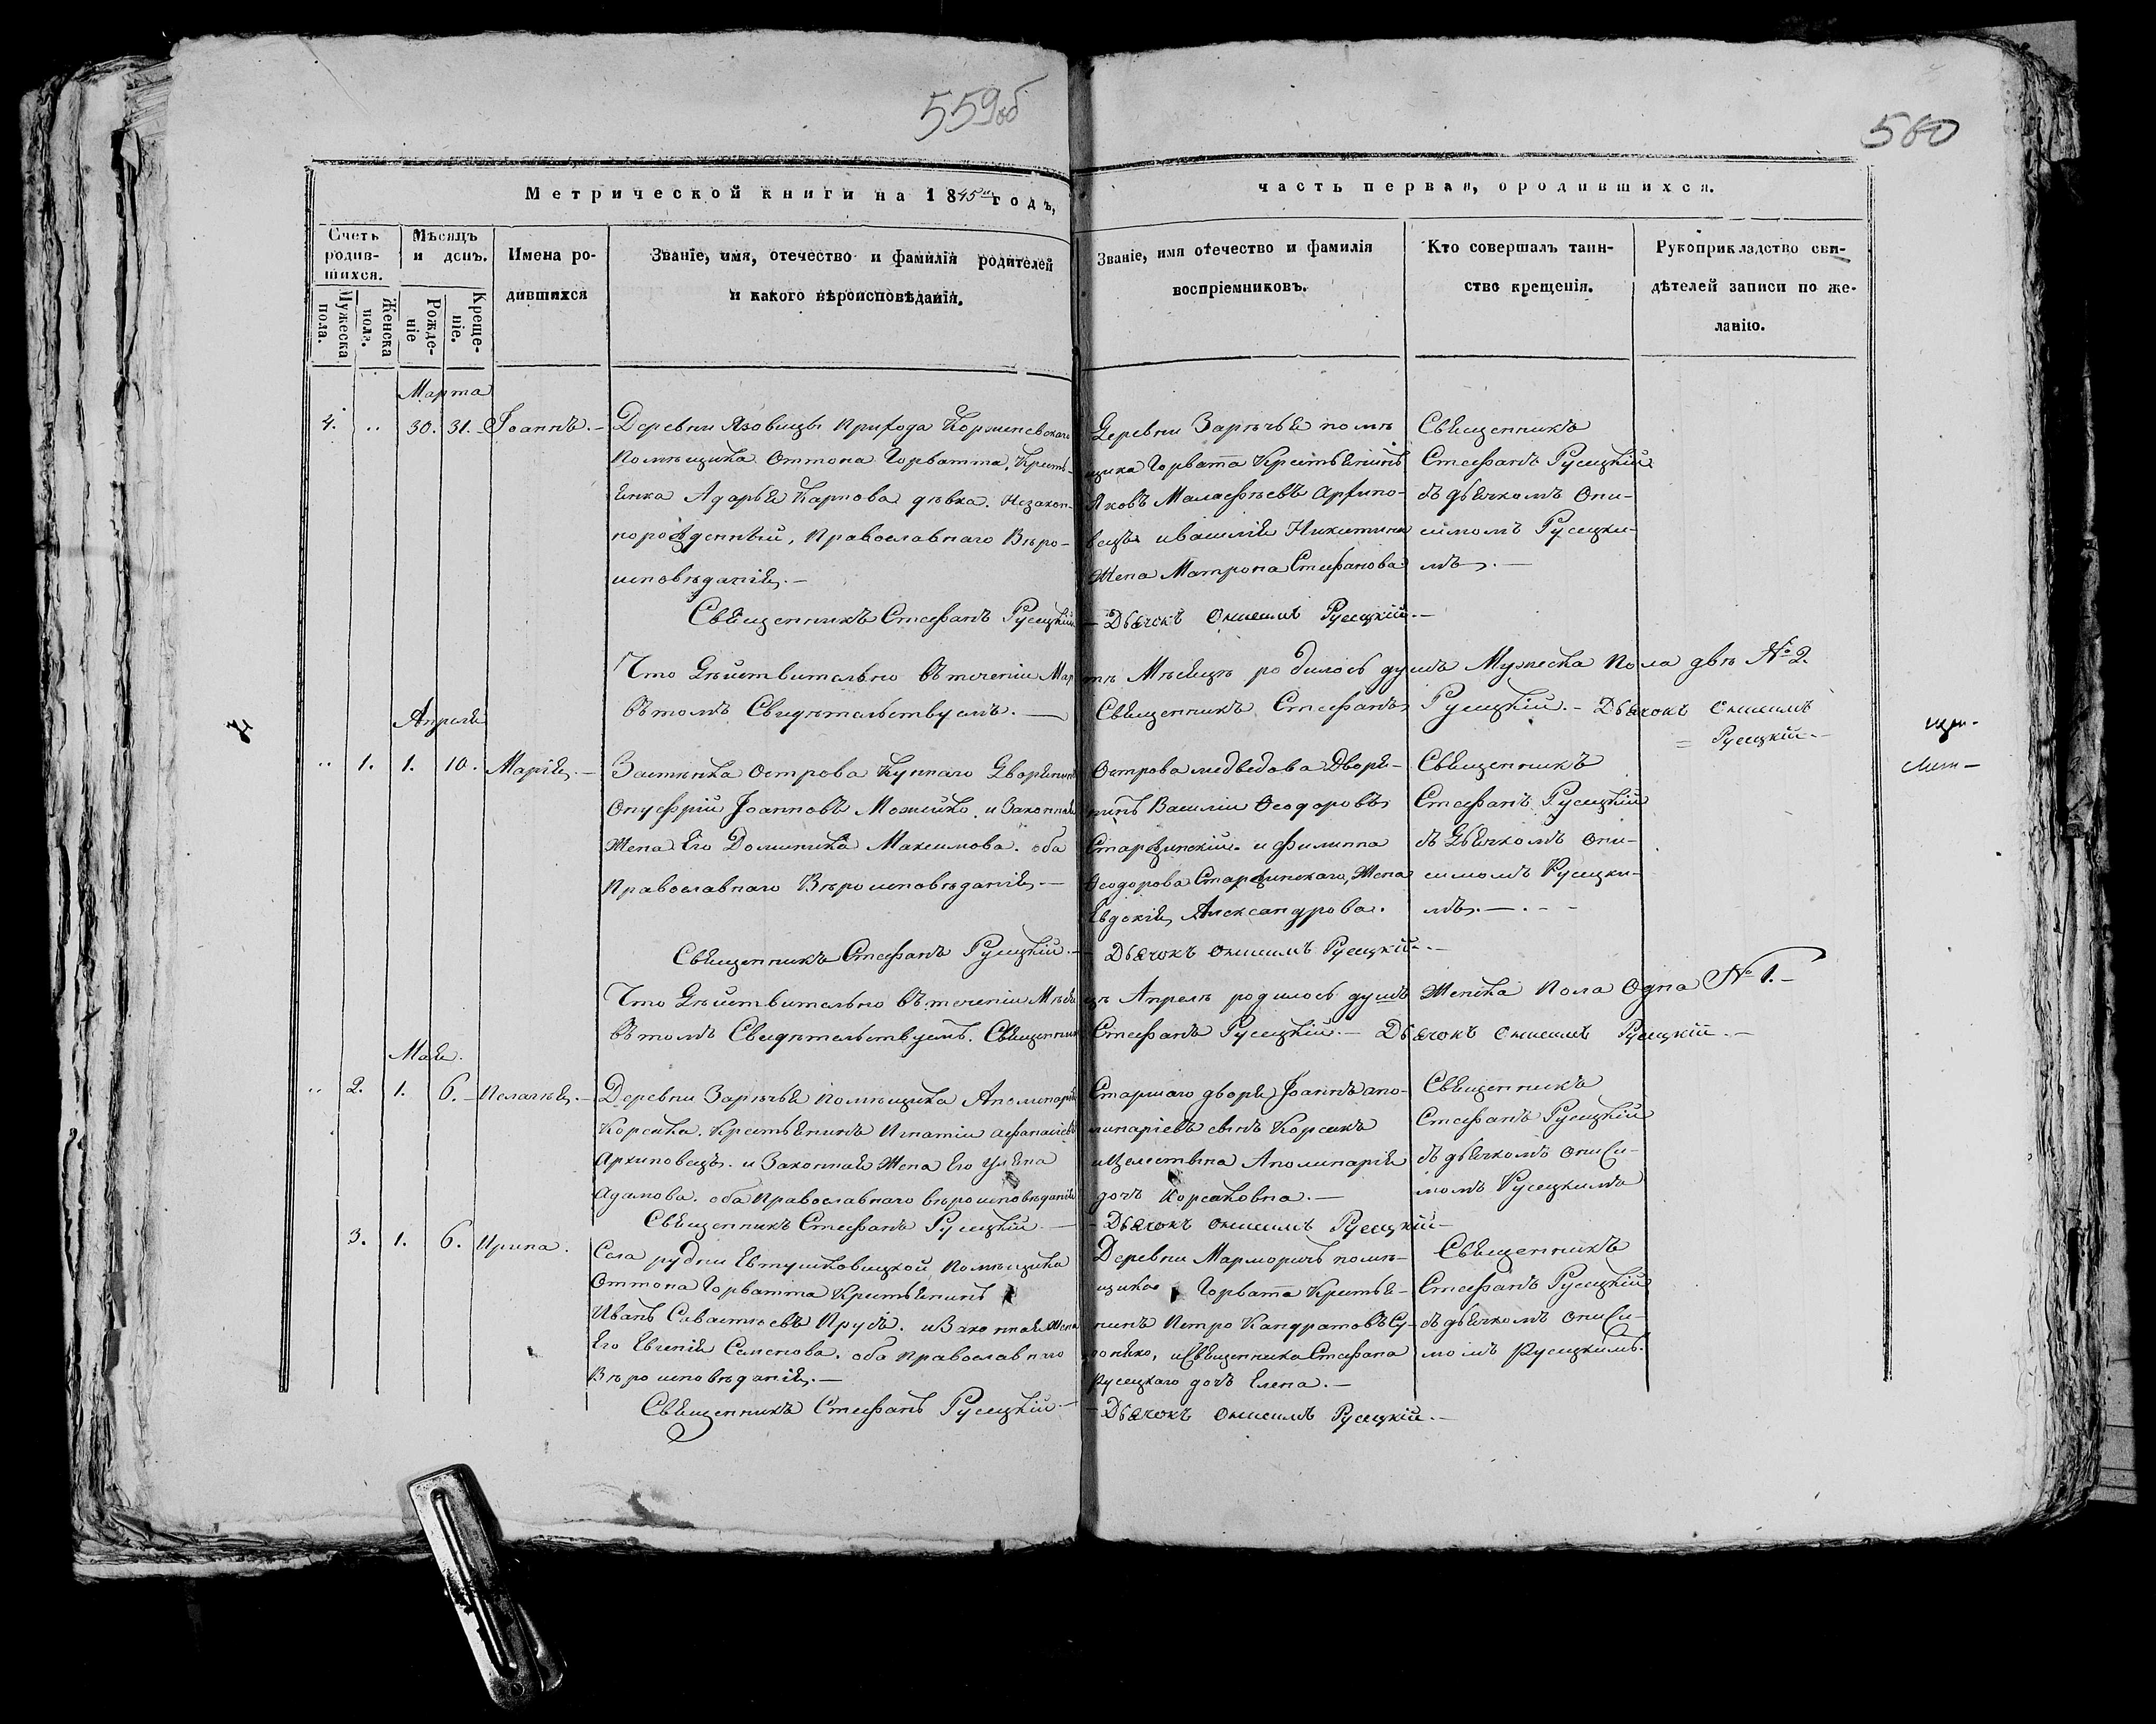 559об
560
Метрической книги на 1845й годъ,
часть первая, о родившихся.
Счетъ родив-
шихся.
Мужеска
пола.
Женска
пола.
Мѣсяцъ
и день.
Рожде-
ніе
Креще-
ніе.
Имена ро-
дившихся
Званіе, имя, отечество и фамилія родителей
и какого вѣроисповѣданія.
Званіе, имя отечество и фамилія
воспріемниковъ.
Кто совершалъ таин-
ство крещенія.
Рукоприкладство сви-
дѣтелей записи по же-
ланію.
Марта
4. „ 30. 31. Іоаннъ.
Деревни Язовицы прихода
Помѣщика Оттона Горватта, Кресть-
янка Адарья Карпова дѣвка. Незакон-
норожденный, Православнаго Вѣро-
исповѣданія.
Деревни Зарѣчья помѣ
щика Горвата Крестьянинъ
Яковъ Малафѣевъ Архипо-
вецъ и Василія Никитина
жена Матрона Стефанова
Священникъ
Стефанъ Русецкій
съ дьячкомъ Они-
симомъ Русецки-
мъ.
Священникъ Стефанъ Русецкій
Дьячокъ Онисимъ Русецкій.
Что дѣйствительно въ теченіи Мартѣ Мѣсяцѣ родилось душъ Мужеска пола двѣ № 2.
Въ томъ Свидѣтельствуемъ. Священникъ Стефанъ Русецкій. Дьячокъ Онисимъ
Русецкій.
Апреля
„ 1. 1. 10. Марія.
Застѣнка Острова Дворянинъ
Онуфрій Іоанновъ Можейко. и Законная
Жена Его Доминика Максимова. оба
Православнаго Вѣроисповѣданія.
Острова медведова Дворя-
нинъ Василіи Ѳеодоровъ
и филиппа
Ѳеодорова Жена
Евдокія, Александрова.
Священникъ
Стефанъ Русецкій
съ Дьячкомъ Они-
симомъ Русецки-
мъ.
Священникъ Стефанъ Русецкій.
Дьячокъ Онисимъ Русецкій.
Что Дѣйствительно въ теченіи Мѣсяцѣ Апрелѣ родилось душъ Женска Пола Одна № 1.
Въ томъ Свидѣтельствуемъ. Священникъ Стефанъ Русецкій. Дьячокъ Онисимъ Русецкій.
Мая.
„ 2. 1. 6. Пелагѣя.
Деревни Зарѣчья Помѣщика Аполинарія
Корсака. Крестьянинъ Игнатіи Афанасіевъ
Архиповецъ. и Законная Жена Его Уляна
Адамова. оба Православнаго вѣроисповѣданія
Старшаго двора Іоаннъ апо-
линаріевъ сынъ Корсакъ
и Целестына Аполинарія
дочь Корсаковна.
Священникъ
Стефанъ Русецкій
съ дьячкомъОниси-
момъ Русецкимъ
Священникъ Стефанъ Русецкій
Дьячокъ Онисимъ Русецкій
3. 1. 6. Ирина.
Села рудни Евтушковицкой Помѣщика
Оттона Горватта Крестьянинъ
Иванъ Савастѣевъ Прусъ. и Законная Жена
Его Евгенія Семенова. оба Православнаго
Вѣроисповѣданія.
Деревни Марморичъ помѣ-
щика Горвата Крестья-
нинъ Петро Кандратовъ
и Священника Стефана
Русецкаго дочь Елена.
Священникъ
Стефанъ Русецкій
съ дьячкомъ Ониси-
момъ Русецкимъ.
Священникъ Стефанъ Русецкій
Дьячокъ Онисимъ Русецкій.